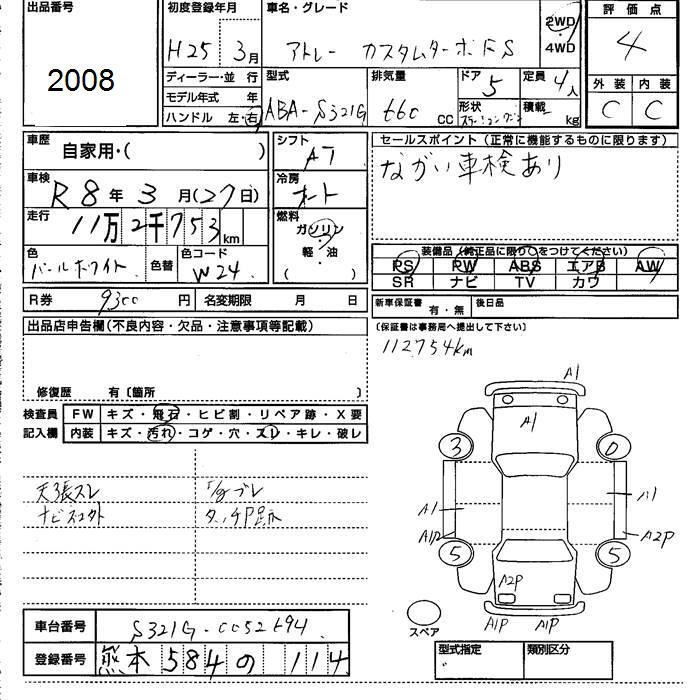 出品番号
2008
初度登録年月
H25 3月
車名・グレード
アトレー カスタムターボRS
2WD
・
4WD
評価点
4
外装 内装
C C
ディーラー・並行
モデル年式 年
ハンドル 左・右
型式
ABA-S321G
排気量
660 cc
ドア
5
形状
ステーションワゴン
定員
4人
積載
kg
車歴
自家用・( )
シフト
AT
車検
R8年3月(27日)
冷房
オート
走行
11万2千753km
燃料
ガソリン
・
軽・油
( )
色
パールホワイト
色替
色コード
W24
R券 9300円
名変期限 月 日
セールスポイント(正常に機能するものに限ります)
ながい車検あり
装備品(純正品に限り○をつけてください)
PS PW ABS エアB AW
SR ナビ TV カワ
新車保証書 有・無
後日品
(保証書は事務局へ提出して下さい)
112754km
出品店申告欄(不良内容・欠品・注意事項等記載)
修復歴 有〔箇所 〕
検査員 FW キズ・飛石・ヒビ割・リペア跡・X要
記入欄 内装 キズ・汚れ・コゲ・穴・スレ・キレ・破レ
天張スレ
ナビスコ外
タッチP跡
A1
A1
3
0
A1
A1
A1P
A2P
5
5
A2P
A1P A1P
スペア
車台番号 S321G-0052694
登録番号 熊本584の114
型式指定
類別区分